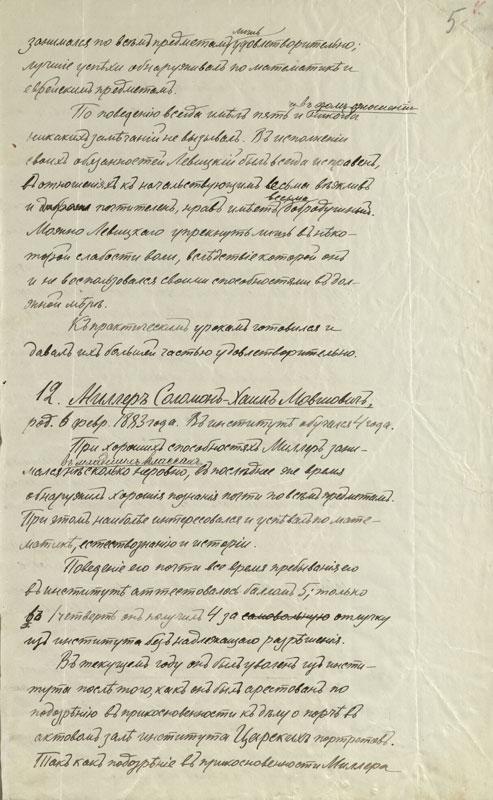 5
лишь
занимался по всѣмъ предметамъ удовлетворительно;
лучшіе успѣхи обнаруживалъ по математикѣ и
еврейскимъ предметамъ.
и въ этомъ отношеніи
По поведенію всегда имѣлъ пять и
никакихъ замѣчаній не вызывалъ. Въ исполненіи
своихъ обязанностей Левицкій былъ всегда исправенъ,
въ отношеніяхъ къ начальствующимъ весьма вѣжливъ
весьма
и почтителенъ, нравъ имѣетъ добродушный.
Можно Левицкаго упрекнуть лишь въ нѣко-
торой слабости воли, вслѣдствіе которой онъ
и не воспользовался своими способностями въ дол-
жной мѣрѣ.
Къ практическимъ урокамъ готовился и
давалъ ихъ большей частью удовлетворительно.
12. Миллеръ Соломонъ-Хаимъ Мовшовичъ,
род. 6 февр. 1883 года. Въ институтѣ обучался 4 года.
При хорошихъ способностяхъ Миллеръ зани-
въ младшихъ классахъ
мался нѣсколько неровно, въ послѣднее же время
обнаружилъ хорошія познанія почти по всѣмъ предметамъ.
При этомъ наиболѣе интересовался и успѣвалъ по мате-
матикѣ, естествознанію и исторіи.
Поведеніе его почти все время пребыванія его
въ институтѣ аттестовалось балломъ 5; только
въ 1 четверти онъ получилъ 4 за самовольную отлучку
изъ института безъ надлежащаго разрѣшенія.
Въ текущемъ году онъ былъ уволенъ изъ инсти-
тута послѣ того, какъ онъ былъ арестованъ по
подозрѣнію въ прикосновенности къ дѣлу о порчѣ въ
актовомъ залѣ института Царскихъ портретовъ.
Такъ какъ подозрѣніе въ прикосновенности Миллера